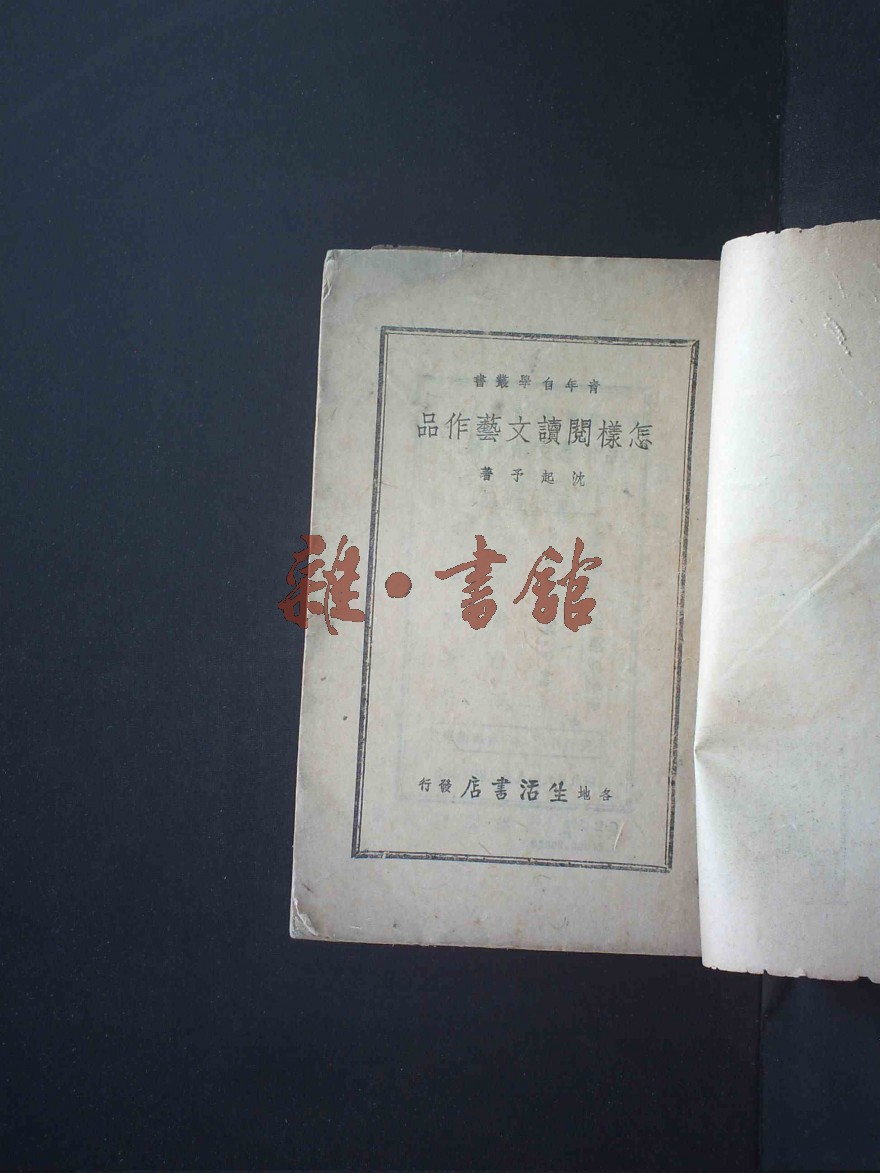 青年自學叢書
怎樣閱讀文藝作品
沈起予著
雜·書館
各地生活書店發行